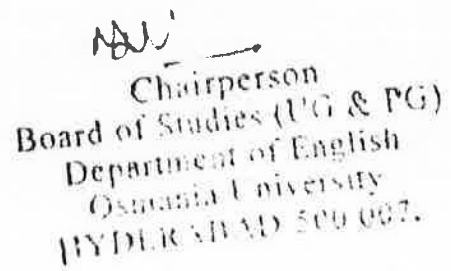 Chairperson
Board of Studies (UG & PG)
Department of English
Osmania University
HYDERABAD 500 007.